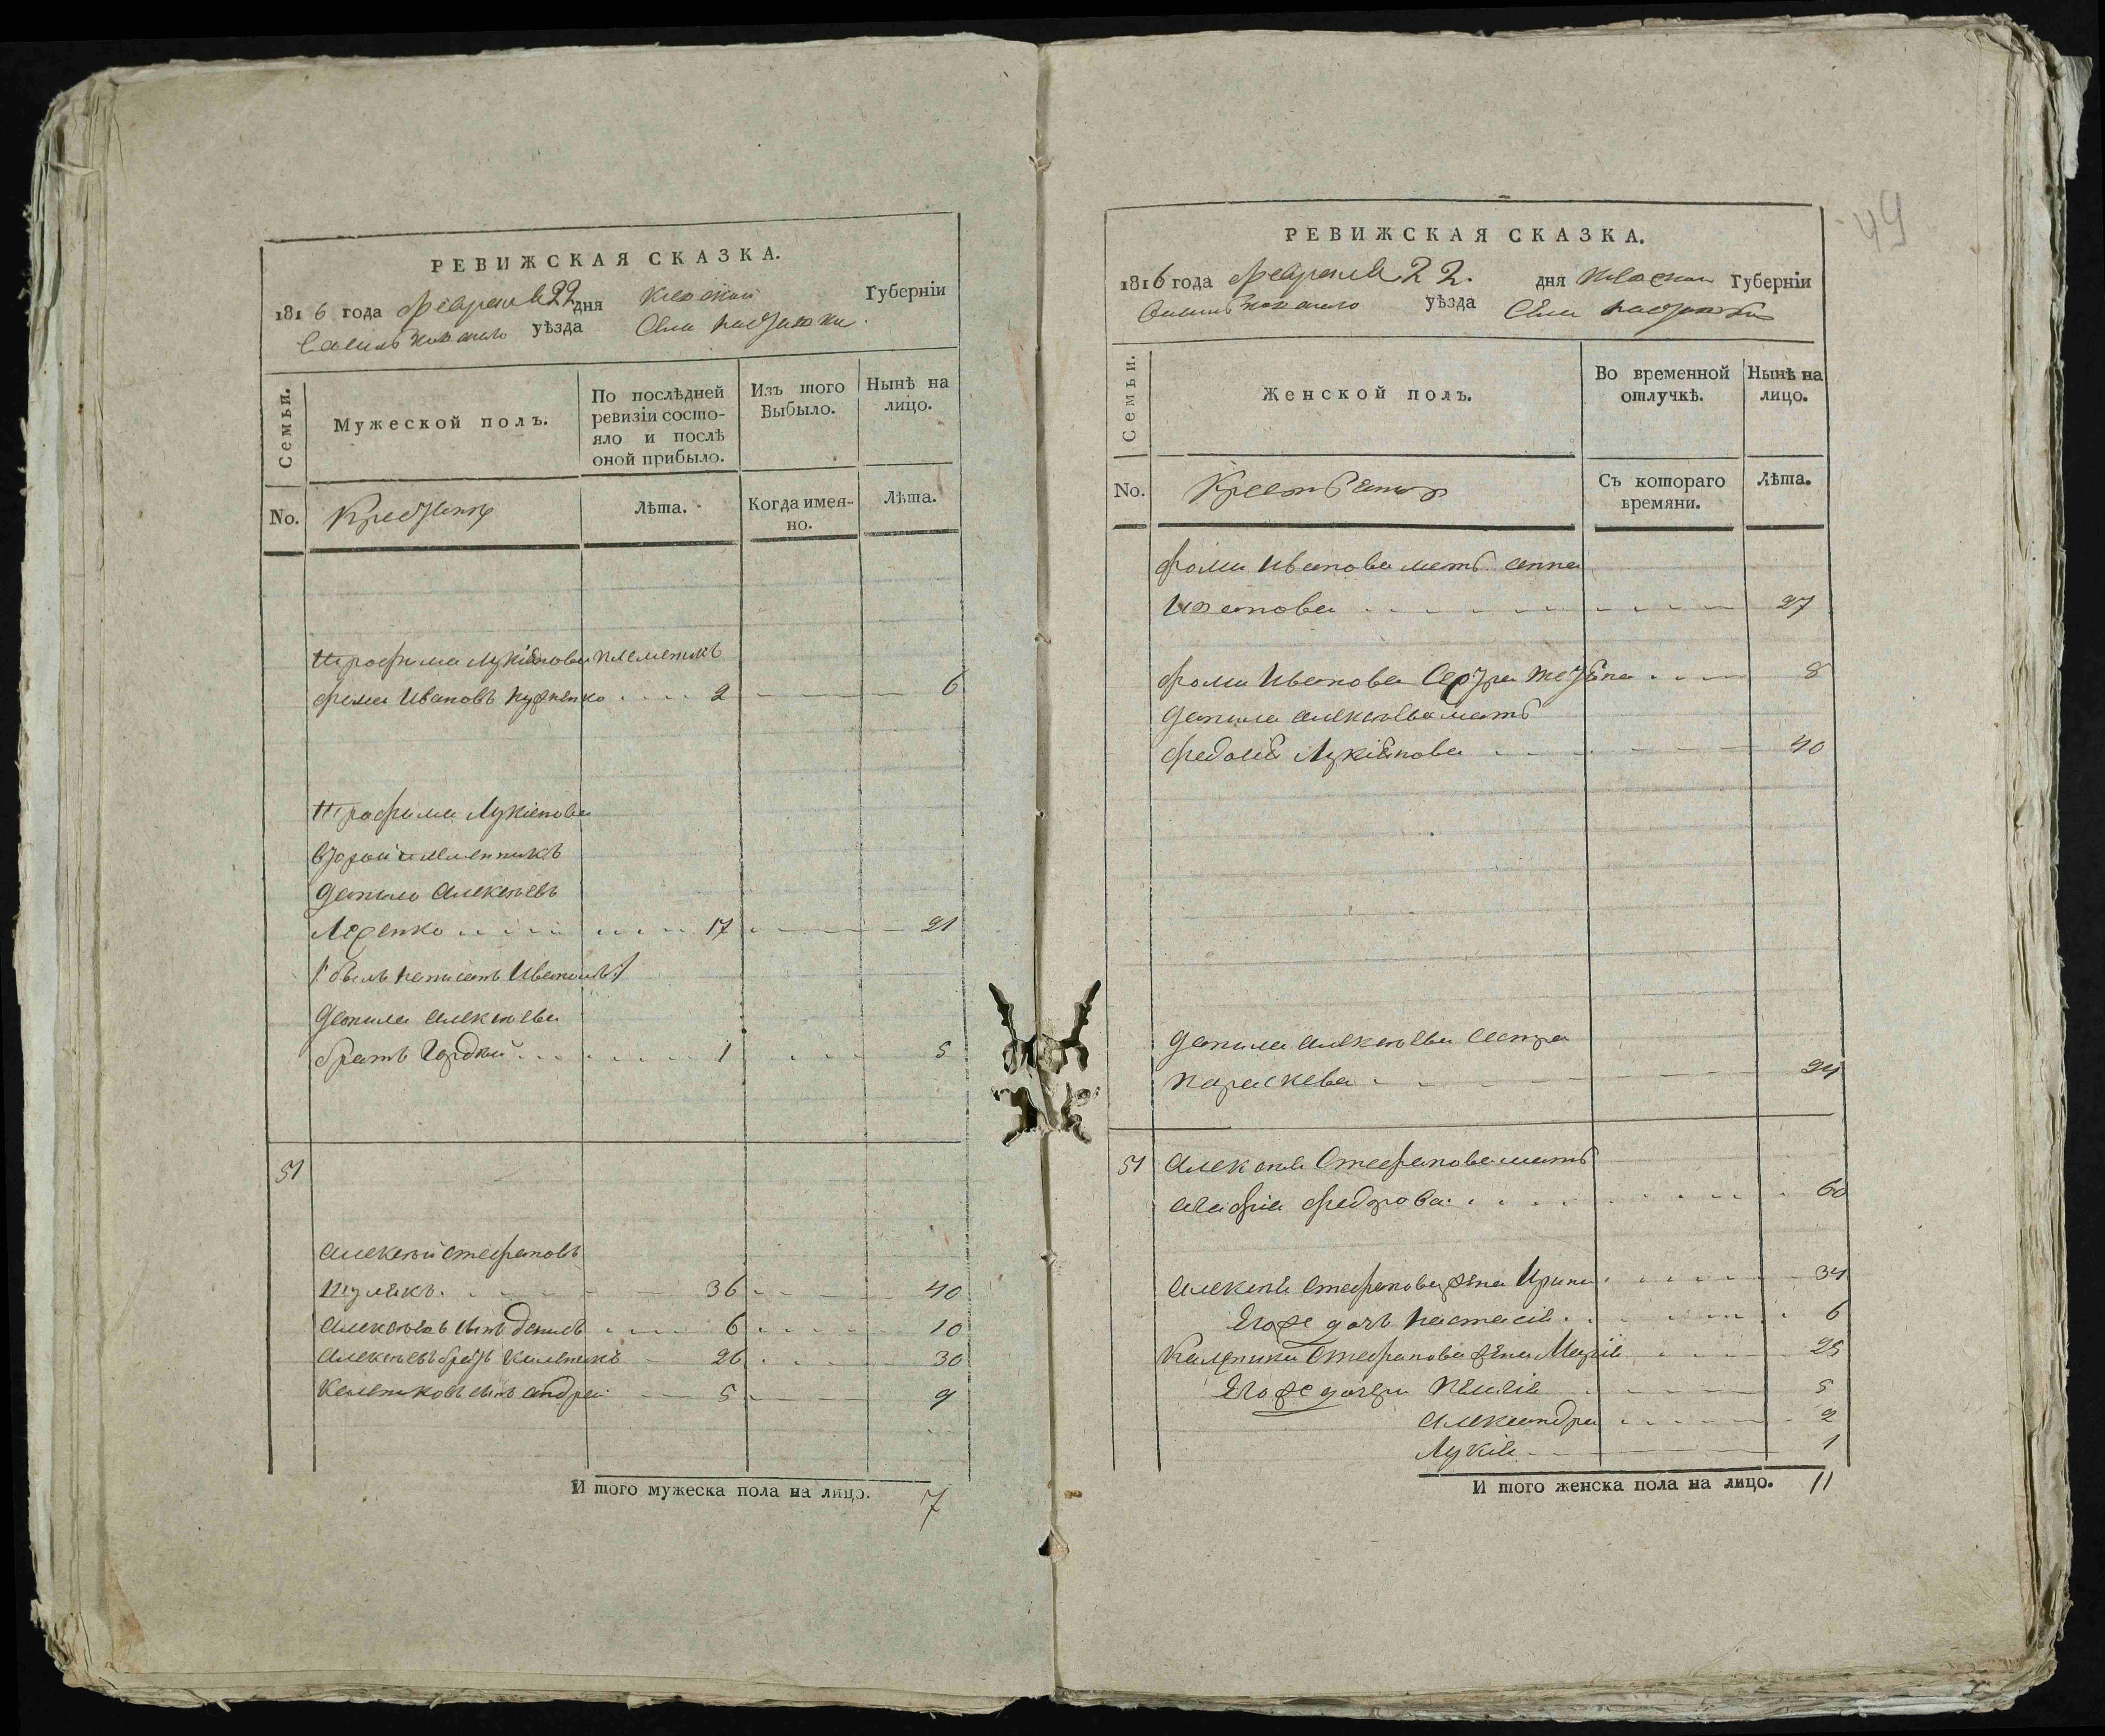 РЕВИЖСКАЯ СКАЗКА.
1816 года февраля 22 дня Киевской Губерніи
уѣзда Села
Семьи.
Мужеской полъ.
По послѣдней ревизіи состояло и послѣ оной прибыло.
Изъ того Выбыло.
Нынѣ на лицо.
No.
Лѣта.
Когда именно.
Лѣта.
Трофима Лукіянова племеникъ
фома Ивановъ 2 6
Трофима Лукіянова
второй племенникъ
Данило Алексѣевъ
17 21
былъ написанъ
Данила Алексѣева
братъ Гордѣй 1 5
51
Алексѣй Стефановъ
36 40
Алексѣевъ сынъ Данилъ 6 10
Алексѣевъ братъ Каленикъ 26 30
Калениковъ сынъ андрей 5 9
И того мужеска пола на лицо. 7
49
РЕВИЖСКАЯ СКАЗКА.
1816 года февраля 22. дня Киевской Губерніи
уѣзда Села
Семьи.
Женской полъ.
Во временной отлучкѣ.
Нынѣ на лицо.
No.
Съ котораго времяни.
Лѣта.
фомы Иванова мать анна
Иванова 27
фомы Иванова Сестра 8
Данила алексѣева мать
Лукіянова 40
Данила алексѣева сестра
параскева 24
51 Алексѣя Стефанова мать
агафія федорова 60
Алексѣя Стефанова жена Ирина 34
Его же дочь настасія 6
Каленика Стефанова жена Марія 25
Его же дочери 5
александра 2
Лукія 1
И того женска пола на лицо. 11